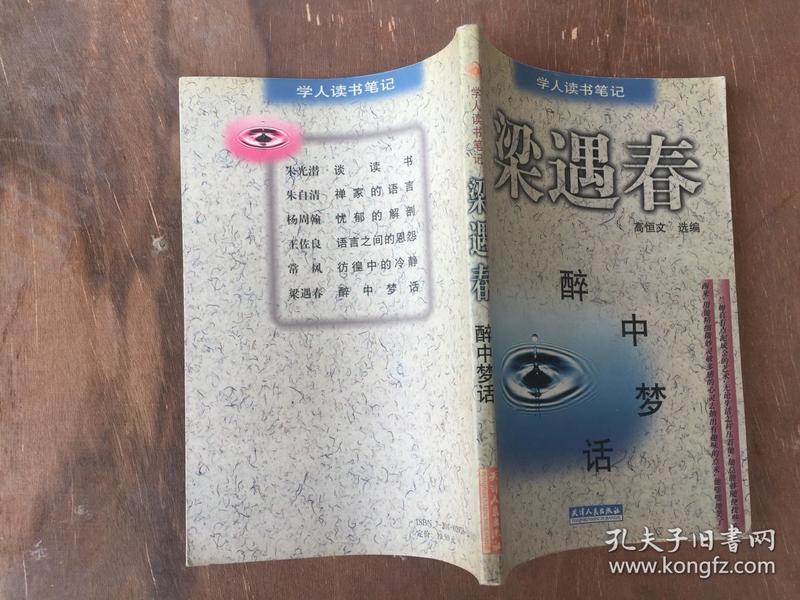 学人读书笔记
朱光潜 谈读书
朱自清 禅家的语言
杨周翰 忧郁的解剖
王佐良 语言之间的恩怨
常风 彷徨中的冷静
梁遇春 醉中梦话
定价
学人读书笔记
梁遇春
醉中梦话
天津人民出版社
学人读书笔记
梁遇春
高恒文 选编
醉中梦话
天津人民出版社
孔夫子旧书网
www.kongfz.com